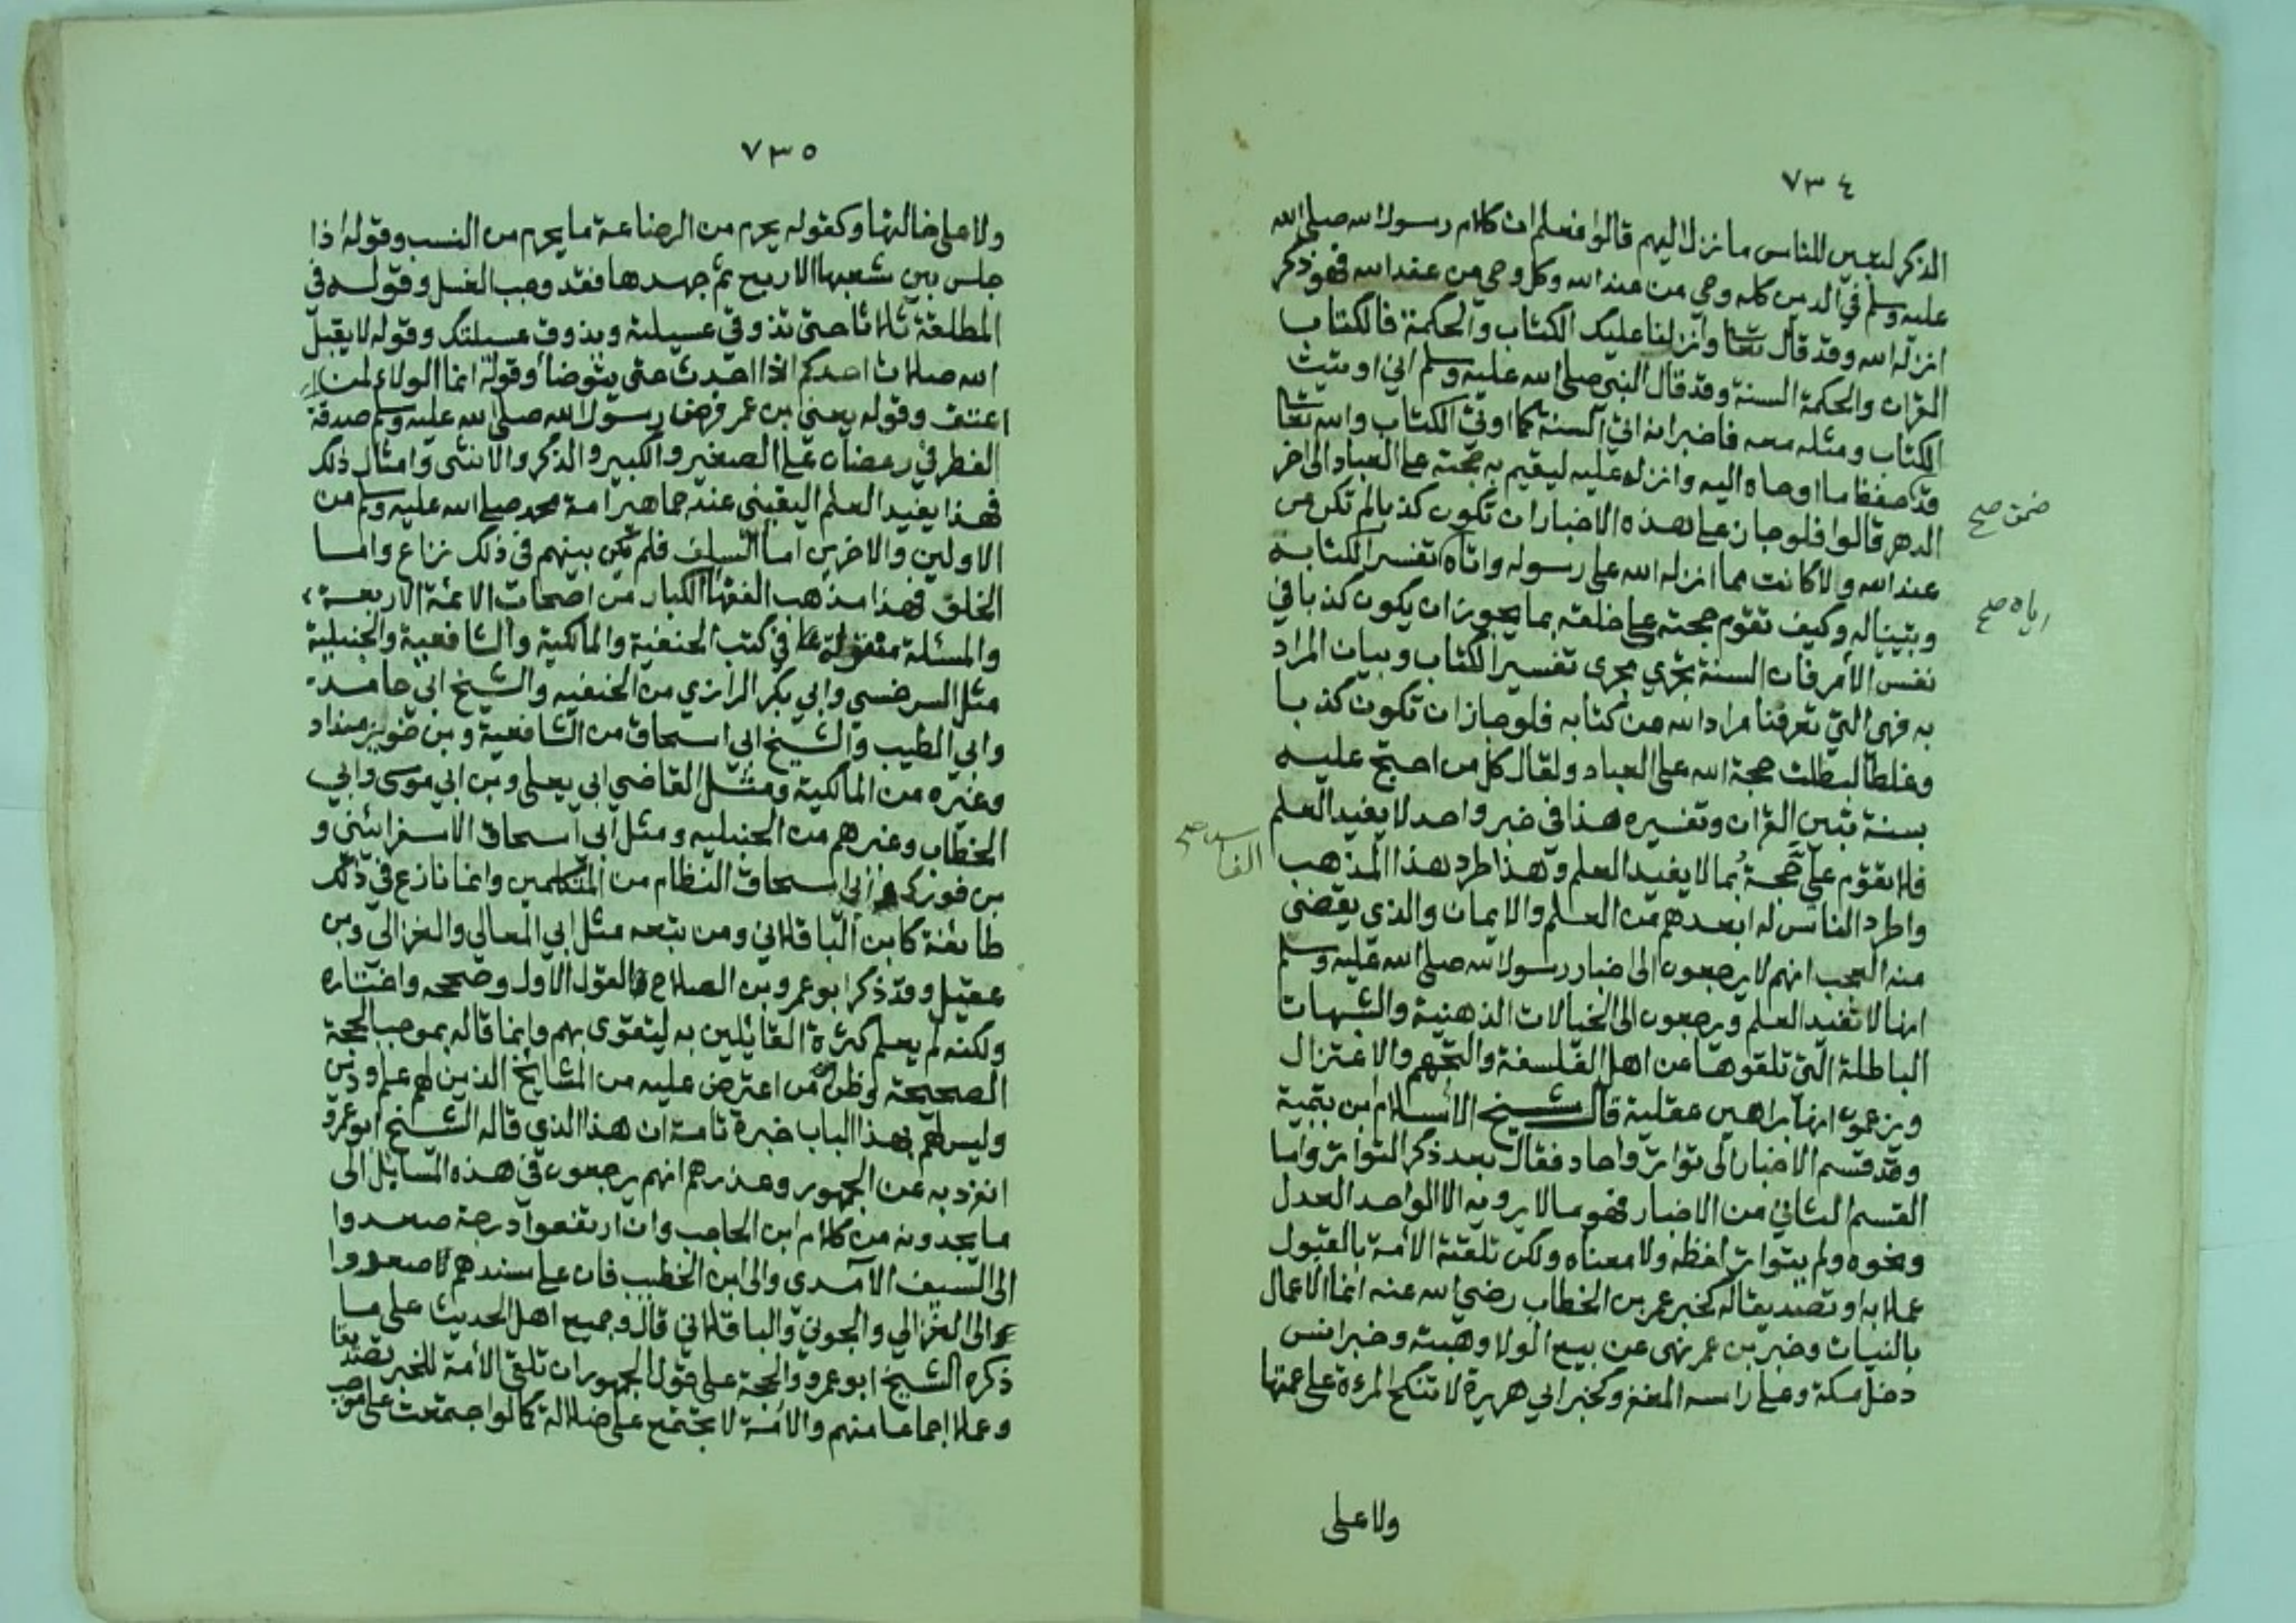 ٧٣٤
الذكر لتبين للناس ما نزل اليهم قالوا فعلم ان كلام رسول الله صلى الله
عليه وسلم في الدين كله وحي من عند الله وكل وحي من عند الله فهو ذكر
انزله الله وقد قال تعا وانزلنا عليك الكتاب والحكمة فالكتاب
القران والحكمة السنة وقد قال النبي صلى الله عليه وسلم اني اوتيت
الكتاب ومثله معه فاخبر انه اتي السنة كما اوتي الكتاب والله تعا
قد حفظ ما اوحاه اليه وانزله عليه ليقيم به حجته على العباد الى اخر
ضمن صح
الدهر قالوا فلو جاز على هذه الاخبار ان تكون كذبا لم تكن من
عند الله ولا كانت مما انزله الله على رسوله واتاه تفسير الكتابه
اياه صح
وتبيناله وكيف تقوم حجته على خلقه بما يجوز ان يكون كذبا في
نفس الأمر فان السنة تجري مجرى تفسير الكتاب وبيان المراد
به فهي التي تعرفنا مراد الله من كتابه فلو جاز ان تكون كذبا
وغلطا لبطلت حجة الله على العباد ولقال كل من احتج عليه
بسنة تبين القران وتفسيره هذا في خبر واحد لا يفيد العلم
فلا تقوم علي حجة بما لا يفيد العلم وهذا طرد هذا المذهب
الفاسد صح
واطرد الناس له ابعدهم من العلم والايمان والذي يقضى
منه العجب انهم لا يرجعون الى اخبار رسول الله صلى الله عليه وسلم
انها لا تفيد العلم ويرجعون الى الخيالات الذهنية والشبهات
الباطلة التي تلقوها عن اهل الفلسفة والتجهم والاعتزال
ويزعمون انها براهين عقلية قال شيخ الأسلام بن تيمية
وقد قسم الاخبار الى تواتر واحاد فقال بعد ذكر التواتر واما
القسم الثاني من الاخبار فهو ما لا يرويه الا الواحد العدل
ونحوه ولم يتواتر لفظه ولا معناه ولكن تلقته الأمة بالقبول
عملا به او تصديقا له كخبر عمر بن الخطاب رضي الله عنه انما الاعمال
بالنيات وخبر بن عمر نهى عن بيع الولا وهبته وخبر انس
دخل مكة وعلى راسه المغفر وكخبر ابي هريرة لا تنكح المرءة على عمتها
ولا على
٧٣٥
ولا على خالتها وكقوله يحرم من الرضاعة ما يحرم من النسب وقوله اذا
جلس بين شعبها الاربع ثم جهدها فقد وجب الغسل وقوله في
المطلقة ثلاثا حتى تذوقي عسيلته ويذوق عسيلتك وقوله لا يقبل
الله صلات احدكم اذا احدث حتى يتوضا وقوله انما الولاء لمن
اعتق وقوله يعني بن عمر فرض رسول الله صلى الله عليه وسلم صدقة
الفطر في رمضان على الصغير والكبير والذكر والانثى وامثال ذلك
فهذا يفيد العلم اليقيني عند جماهير امة محمد صلى الله عليه وسلم من
الاولين والاخرين اما السلف فلم يكن بينهم في ذلك نزاع واما
الخلف فهذا مذهب الفقها الكبار من اصحاب الائمة الاربعة
والمسئلة منقولة في كتب الحنفية والمالكية والشافعية والحنبلية
مثل السرخسي وابي بكر الرازي من الحنفيه والشيخ ابي حامد
وابي الطيب والشيخ ابي اسحاق من الشافعية وبن خويز منداد
وغيره من المالكية ومثل القاضي ابي يعلى وبن ابي موسى وابي
الخطاب وغيرهم من الحنبليه ومثل ابي اسحاق الاسفرائني و
بن فورك وابي اسحاق النظام من المتكلمين وانما نازع في ذلك
طائفة كابن الباقلاني ومن تبعه مثل ابي المعالي والغزالي وبن
عقيل وقد ذكر ابو عمرو بن الصلاح القول الاول وصححه واختاره
ولكنه لم يعلم كثرة القائلين به ليتقوى بهم وانما قاله بموجب الحجة
الصحيحة وظن من اعترض عليه من المشايخ الذين لهم علم ودين
وليس لهم بهذا الباب خبرة تامة ان هذا الذي قاله الشيخ ابو عمرو
انفرد به عن الجمهور وعذرهم انهم يرجعون في هذه المسايل الى
ما يجدونه من كلام ابن الحاجب وان ارتفعوا درجة صعدوا
الى السيف الآمدي والى ابن الخطيب فان علي سندهم صعدوا
الى الغزالي والجويني والباقلاني قال وجميع اهل الحديث على ما
ذكره الشيخ ابو عمرو والحجة على قول الجمهور ان تلقي الأمة للخبر تصديقا
وعملا اجماعا منهم والامة لا تجتمع على ضلالة كما لو اجتمعت على موجب